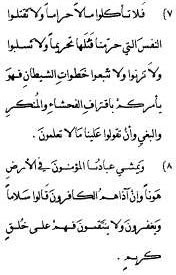 ٧) فلا تأكلوا مالاً حراماً ولا تقتلوا
النفس التي حرمنا قتلها تحريماً ولا تسلبوا
ولا تزنوا ولا تتبعوا خطوات الشيطان فهو
يأمركم باقتراف الفحشاء والمنكر
والبغي وأن تقولوا علينا ما لا تعلمون .
٨) ويمشي عبادنا المؤمنون في الأرض
هوناً وإن آذاهم الكافرون قالوا سلاماً
ويغفرون ولا ينتقمون فهم على خلق
كريم .